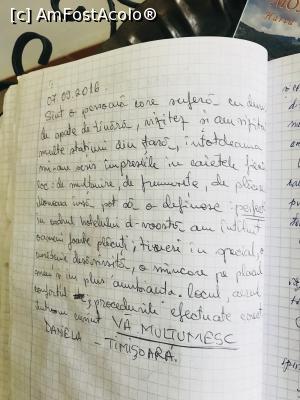 [c] AmFostAcolo®
07.09.2016
Sînt o persoană care suferă cu dureri
de spate de tînără, vizitez și am vizitat
multe stațiuni din țară, întotdeauna
mi-am scris impresiile în caietele
loc: de mulțumire, de frumusețe, de plăcere
însă pot să o definesc: perfect
în cadrul hotelului d-voastră am întîlnit
oameni foarte plăcuți, tineri în special, o
curățenie desăvîrșită, o mîncare pe placul
meu și în plus ambianța locul, aerul
confortul și procedurile efectuate
cuvînt VĂ MULȚUMESC
DANIELA - TIMIȘOARA.